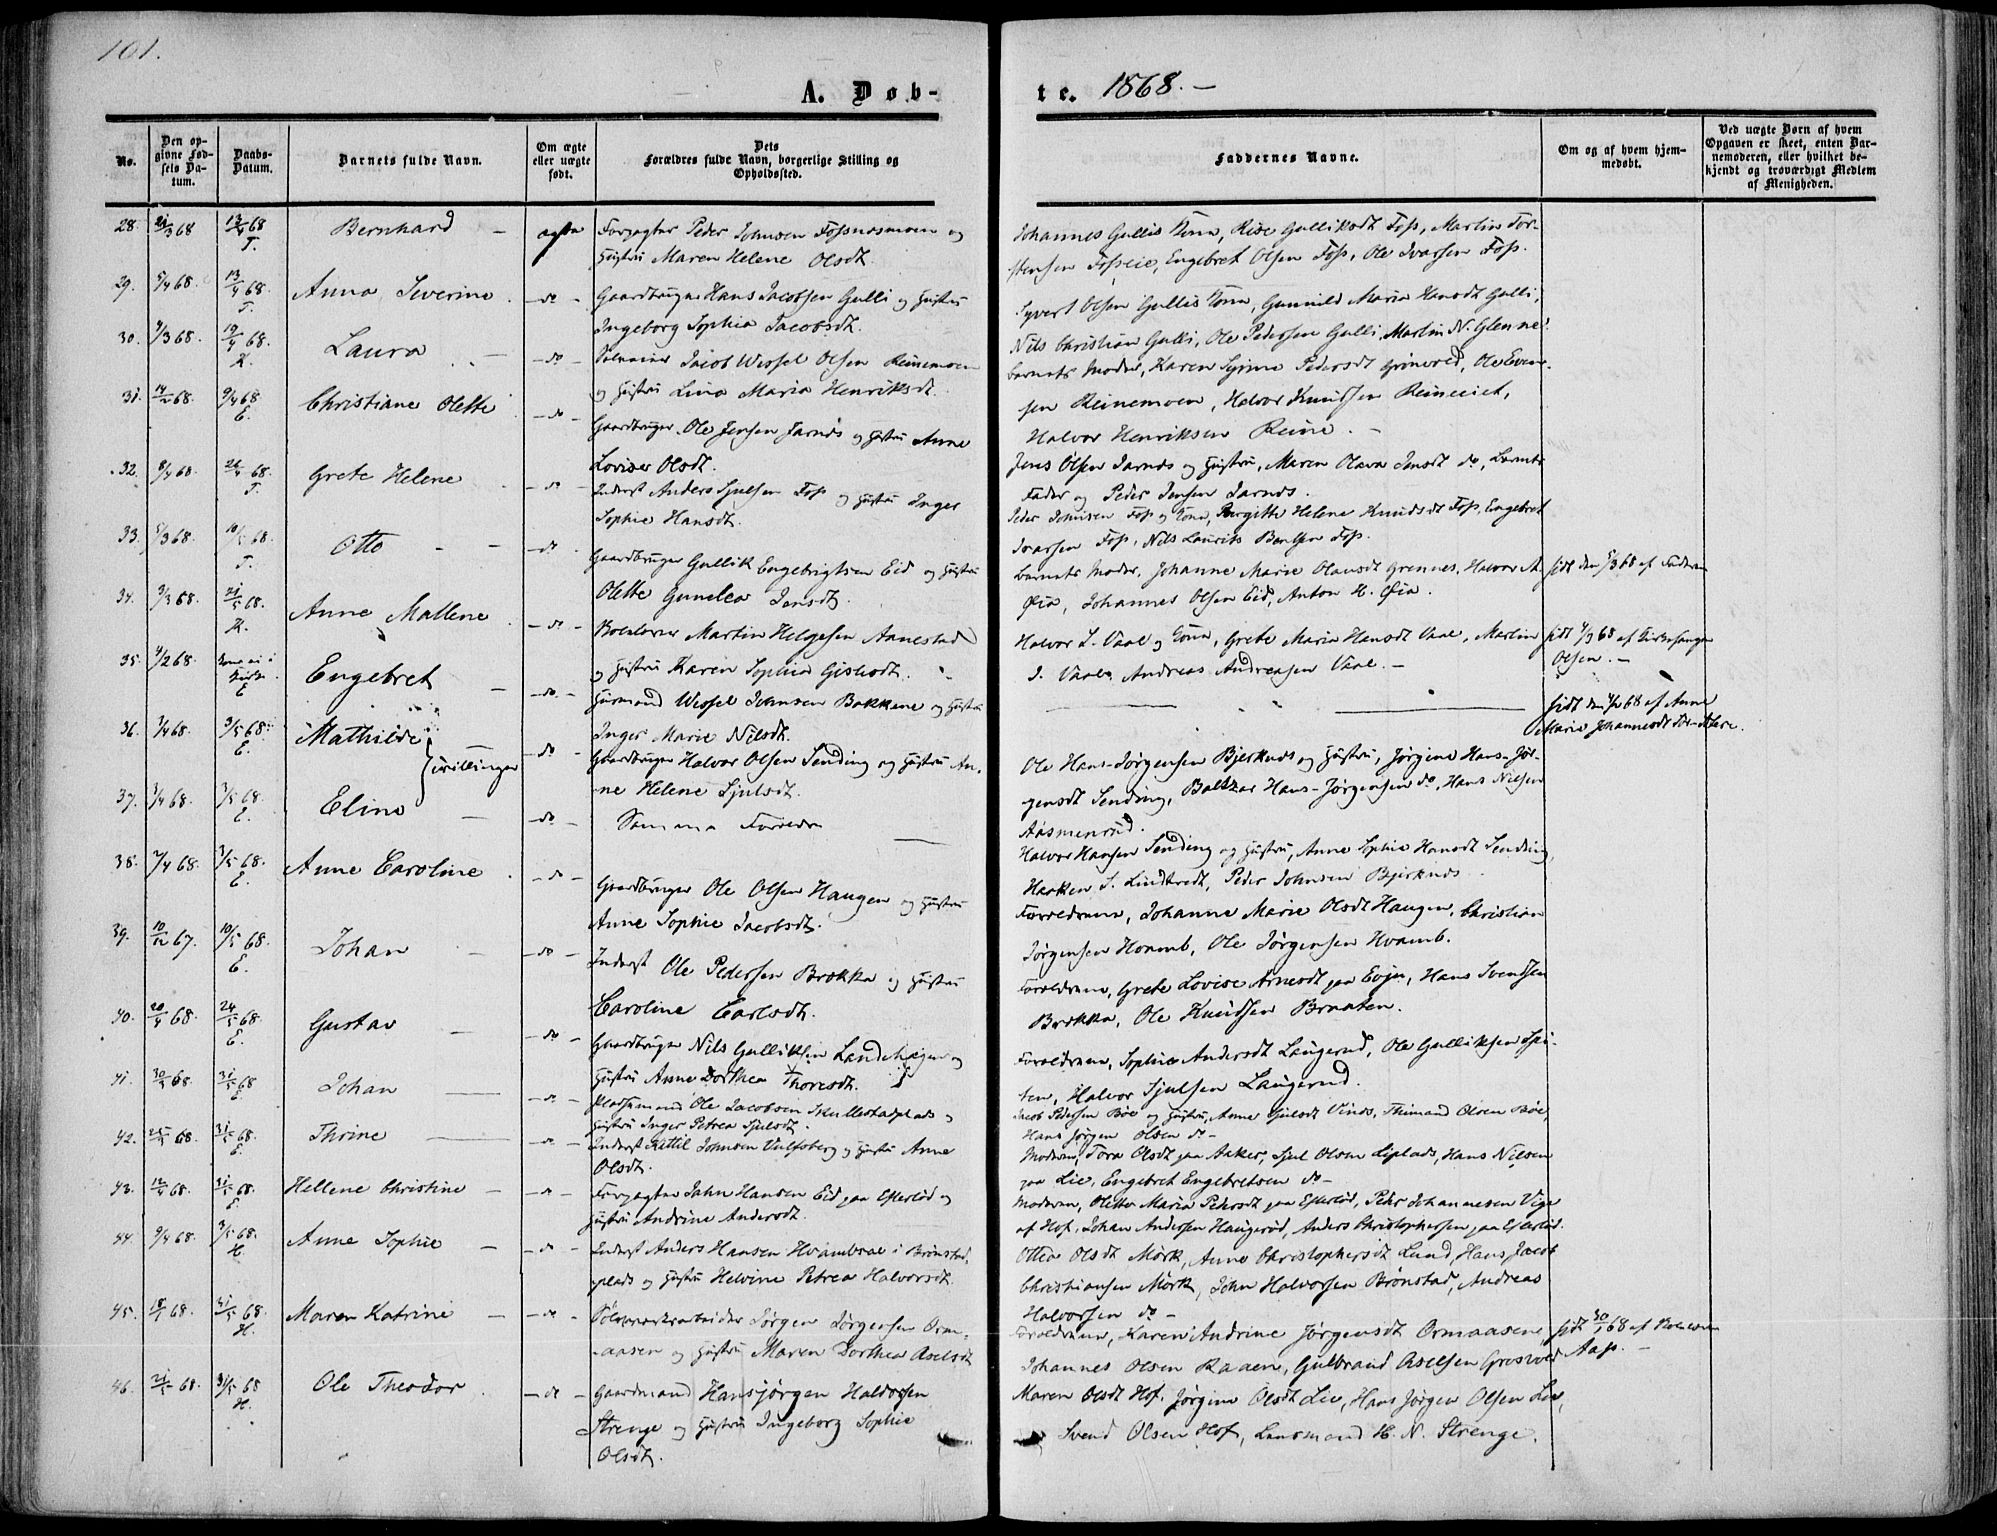 101.
A. Døb-
te. 1868.-
No.
Den op-
givne Fød-
sels Da-
tum.
Daabs-
Datum.
Barnets fulde Navn.
Om ægte
eller uægte
født.
Dets
Forældres fulde Navn, borgerlige Stilling og
Opholdssted.
Faddernes Navne.
Om og af hvem hjem-
medøbt.
Ved uægte Børn af hvem
Opgaven er skeet, enten Bar-
nemoderen, eller hvilket be-
kjendt og troværdigt Medlem
af Menigheden.
28. 21/3 68 13/4 68 T. Bernhard - ægte Forpagter Peder Johnsen Fossnæsmoen og
Hustru Maren Helene Olsdt.
29. 5/4 68. 13/4 68. T. Anna Severine - do - Gaardbruger Hans Jacobsen Gulli og Hustru
Ingeborg Sophia Jacobsdt.
30. 4/3 68. 19/4 68. K. Laura - do - Jacob Wessel Olsen Reinemoen
og Hustru Lina Maria Henriksdt.
31. 14/2 68. 9/4 68 E. Christiane Olette - do - Gaardbruger Ole Jensen Jarnds og Hustru Anne
Lovise Olsdt.
32. 8/4 68. 26/4 68. T. Grete Helene - do - Inderst Anders Sjulsen Foss og Hustru Inger
Sophie Hansdt.
33. 5/3 68. 10/5 68. T. Otto - - do - Gaardbruger Gullik Engebrigtsen Eid og Hustru
Olette Gunelea Jensdt.
34. 3/3 68. 21/5 68. K. Anne Mallene - do - Martin Helgesen Aanestad
og Hustru Karen Sophia Gislesdt.
35. 4/2 68. E Engebret - do - Huusmand Wessel Johnsen Bakkene og Hustru
Inger Marie Nilsdt.
36. 1/4 68. 3/5 68. E. Mathilde - do - Gaardbruger Halvor Olsen Sending og Hustru An-
ne Helene Sjulsdt.
tvillinger
37. 1/4 68. 3/5 68. E. Eline - do - Samme Forældre
38. 7/4 68. 3/5 68. E. Anne Caroline - do - Gaardbruger Ole Olsen Haugen og Hustru
Anne Sophie Jacobsdt.
39. 10/12 67. 10/5 68. E. Johan - do - Inderst Ole Pedersen Brokka og Hustru
Caroline Carlsdt.
40. 20/4 68. 24/5 68. E. Gustav - do - Gaardbruger Nils Gulliksen Landehagen og
Hustru Anne Dorthea Thoresdt.
41. 30/3 68 31/5 68 E Johan - do - Pladsemand Ole Jacobsen Skullestadplads og
Hustru Inger Petrea Sjulsdt.
42. 25/4 68. 31/5 68. E. Thrine - do - Inderst Kittil Johnsen Ulfsberg og Hustru Anne
Olsdt.
43. 12/4 68. 31/5 68. E. Hellene Christine - do - Forpagter Jahn Hansen Eid paa Efteløt og
Hustru Andrine Andersdt.
44. 9/4 68. 3/5 68. H. Anne Sophie - do - Inderst Anders Hansen Hvambsal i Brønstad-
plads og Hustru Helvine Petrea Halvorsdt.
45. 18/1 68. 31/5 68. H. Maren Katrine - do - Sølvværksarbeider Jørgen Jørgensen Orm-
aasen og Hustru Maren Dorthea Axelsdt
46. 21/5 68. 31/5 68 H. Ole Theodor - do - Gaardmand Hansjørgen Haldorsen
Strenge og Hustru Ingeborg Sophie
Olsdt.
Johannes Gullis Kone, Rise Gulliksdt Foss, Martin Tor-
stensen Fosseie, Engebret Olsen Foss, Ole Ivarsen Foss.
Syvert Olsen Gullis Kone, Gunnild Maria Hansdt Gulli,
Nils Christian Gulli, Ole Pedersen Gulli, Martin N. Glenne.
Barnets Moder, Karen Syrine Pedersdt Grønved, Ole Even-
sen Reinemoen, Halvor Knudsen Reineeiet,
Halvor Henriksen Reine. -
Jens Olsen Jarnds og Hustru, Maren Olava Jensdt do, Barnets
Fader og Peder Jensen Jarnds.
Peder Johnsen Foss og Kone, Birgitte Helene Knudsdt Foss, Engebret
Ivarsen Foss, Nils Laurits Bentsen Foss.
Barnets Moder, Johanne Marie Olausdt Grennes, Halvor A.
Øia, Johannes Olsen Eid, Anton H. Øia.
Halvor S. Vaal og Kone, Grete Maria Hansdt Vaal, Martin
J. Vaal, Andreas Andreasen Vaal. -
Ole Hans-Jørgensen Bjerknds og Hustru, Jørgine Hans-Jør-
gensdt Sending, Baltzar Hans-Jørgensen do, Hans Nilsen
Aasmenrud.
Halvor Hansen Sending og Hustru, Anne Sophie Hansdt Sending,
Haaken S. Lindtvedt, Peder Johnsen Bjerknds.
Forældrene, Johanne Marie Olsdt Haugen, Christian
Jørgensen Hvamb, Ole Jørgensen Hvamb.
Forældrene, Grete Lovise Arnesdt paa Evju, Hans Svendsen
Brokka, Ole Knudsen Braaten.
Forældrene, Sophie Andersdt Laugerud, Ole Gulliksen Spi-
ten, Halvor Sjulsen Laugerud.
Jacob Pedersen Bøe og Hustru, Anne Sjulsdt Vinds, Thimand Olsen Bøe,
Hans Jørgen Olsen do -
Moderen, Tora Olsdt paa Aaker, Sjul Olsen Lieplads, Hans Nilsen
paa Lie, Engebret Engebretsen do -
Moderen, Olette Maria Pedersdt paa Efteløt, Peder Johannesen Vige
af Hof, Johan Andersen Haugerød, Anders Christophersen paa Efteløt.
Ottea Olsdt Mørk, Anne Christophersdt Lund, Hans Jacob
Christiansen Mørk, John Halvorsen Brønstad, Andreas
Halvorsen do -
Forældrene, Karen Andrine Jørgensdt Ormaasen,
Johannes Olsen Raaen, Gulbrand Axelsen Grosvold
Maren Olsdt Hof, Jørgine Olsdt Lie, Hans Jørgen Olsen Lie,
Svend Olsen Hof, Lensmand H. N. Strenge.
født den 5/3 68 af Faderen
født 4/3 68 af Kirkesanger
Olsen. -
født den 4/2 68 af Anne
Marie Johannesdt
født 30/1 68 af
Aas. -